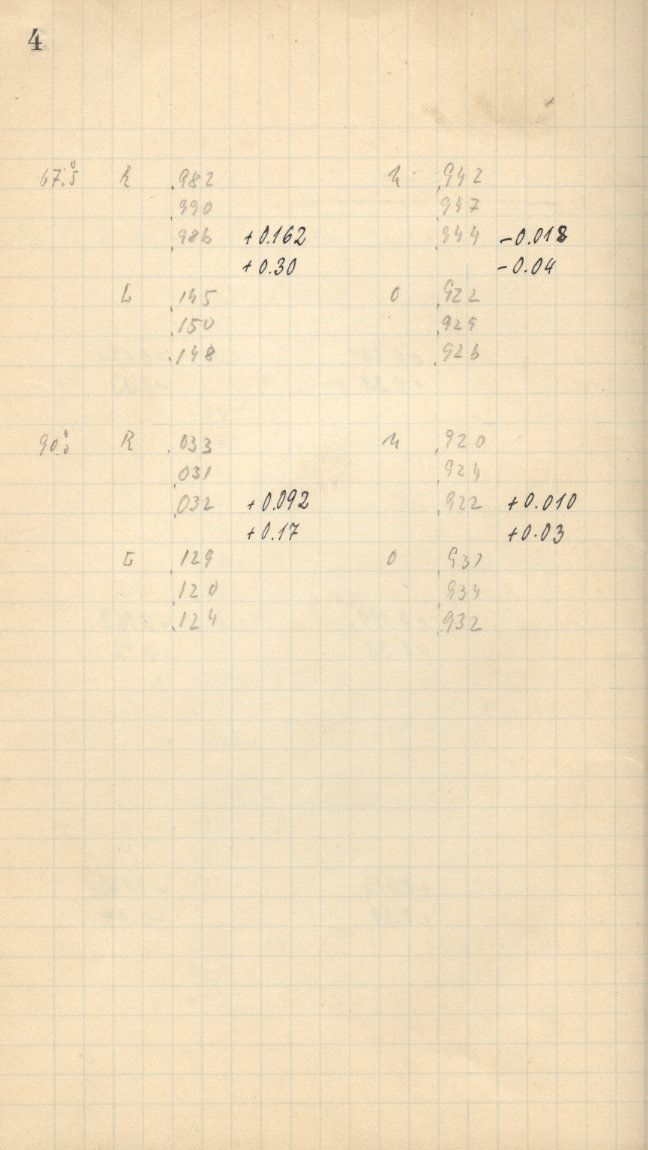 4
67.5° R .982 U .942
.990 .947
.986 +0.162 .944 -0.018
+0.30 -0.04
L .145 O .922
.150 .929
.148 .926
90.0° R .033 U .920
.031 .924
.032 +0.092 .922 +0.010
+0.17 +0.03
L .129 O .931
.120 .934
.124 .932